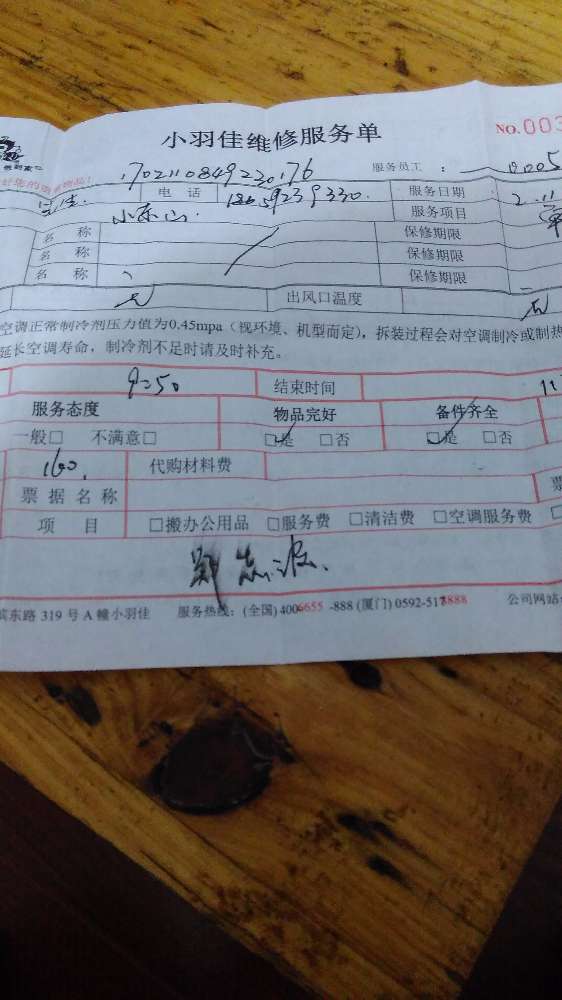 小羽佳维修服务单
NO.003
1702110849230176 服务员工： 0005
电话 服务日期 2.11
小东山. 服务项目
名称 保修期限
名称 保修期限
名称 保修期限
无 出风口温度 无
空调正常制冷剂压力值为0.45mpa（视环境、机型而定），拆装过程会对空调制冷或制热
延长空调寿命，制冷剂不足时请及时补充。
9:50 结束时间
服务态度 物品完好 备件齐全
一般□ 不满意□ □是 □否 □是 □否
160. 代购材料费
票据名称
项目 □搬办公用品 □服务费 □清洁费 □空调服务费
东路 319 号 A 幢小羽佳 服务热线：(全国) 4006655 -888 (厦门) 0592-5178888 公司网站